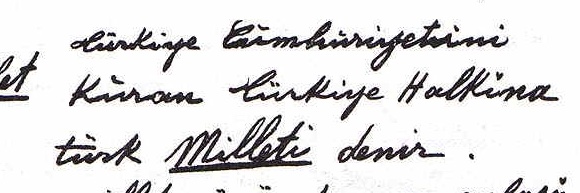 Türkiye Cümhüriyetini
let Kuran Türkiye Halkına
türk Milleti denir.